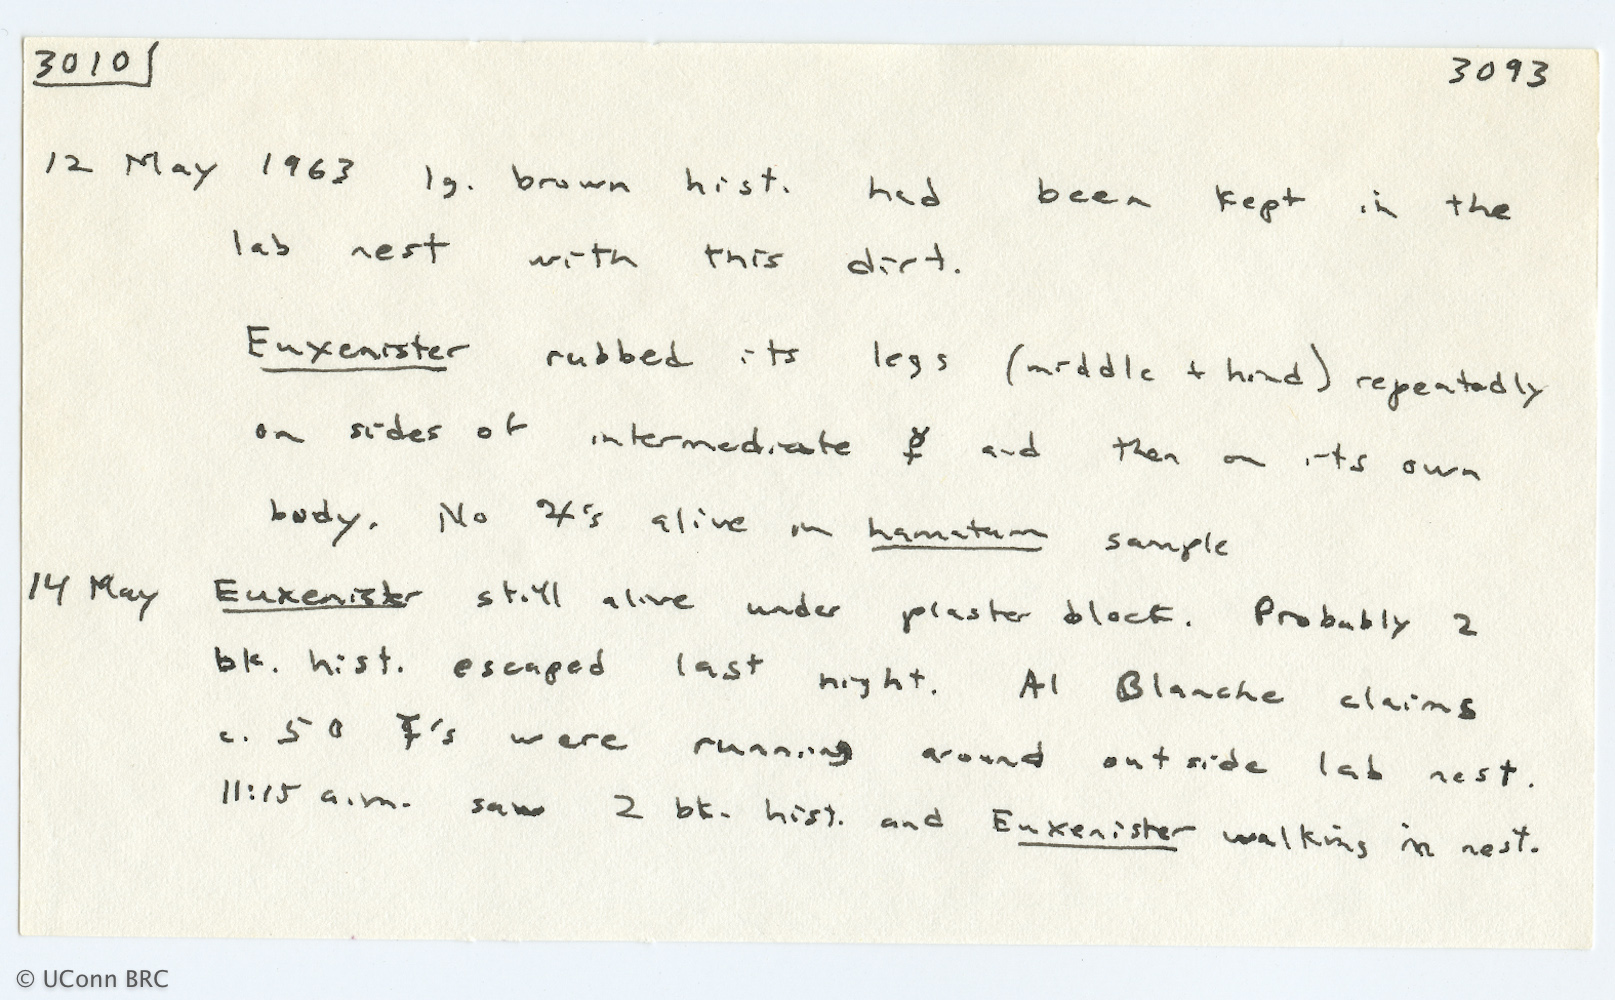 3010 3093
12 May 1963 lg. brown hist. had been kept in the
lab nest with this dirt.
Euxenister rubbed its legs (middle + hind) repeatedly
on sides of intermediate ☿ and then on its own
body. No ♃'s alive in hamatum sample
14 May Euxenister still alive under plaster block. Probably 2
bk. hist. escaped last night. Al Blanche claims
c. 50 ☿'s were running around outside lab nest.
11:15 a.m. saw 2 bk. hist. and Euxenister walking in nest.
© UConn BRC